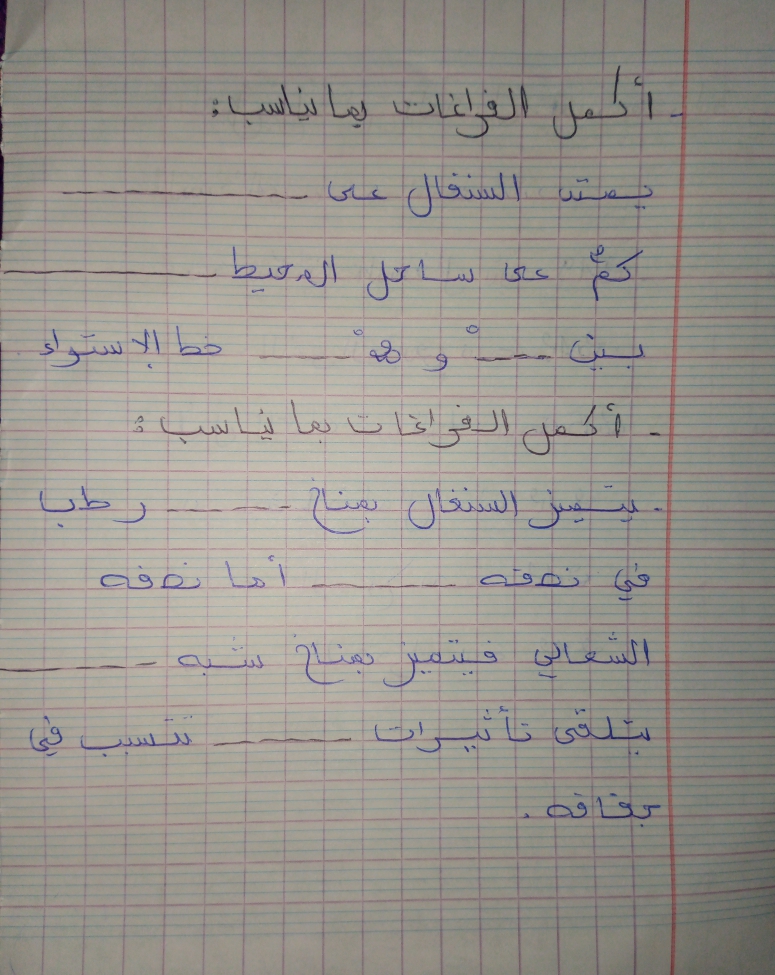 - أكمل الفراغات بما يناسب:
يمتد السنغال على ----------
كمٌ على ساحل المحيط ----------
بين ----° و ----° خط الاستواء
- أكمل الفراغات بما يناسب:
- يتميز السنغال بمناخ ------ رطب
في نصفه ------ أما نصفه
الشمالي فيتميز بمناخ شبه ------
يتلقى تأثيرات ------ تتسبب في
جفافه.